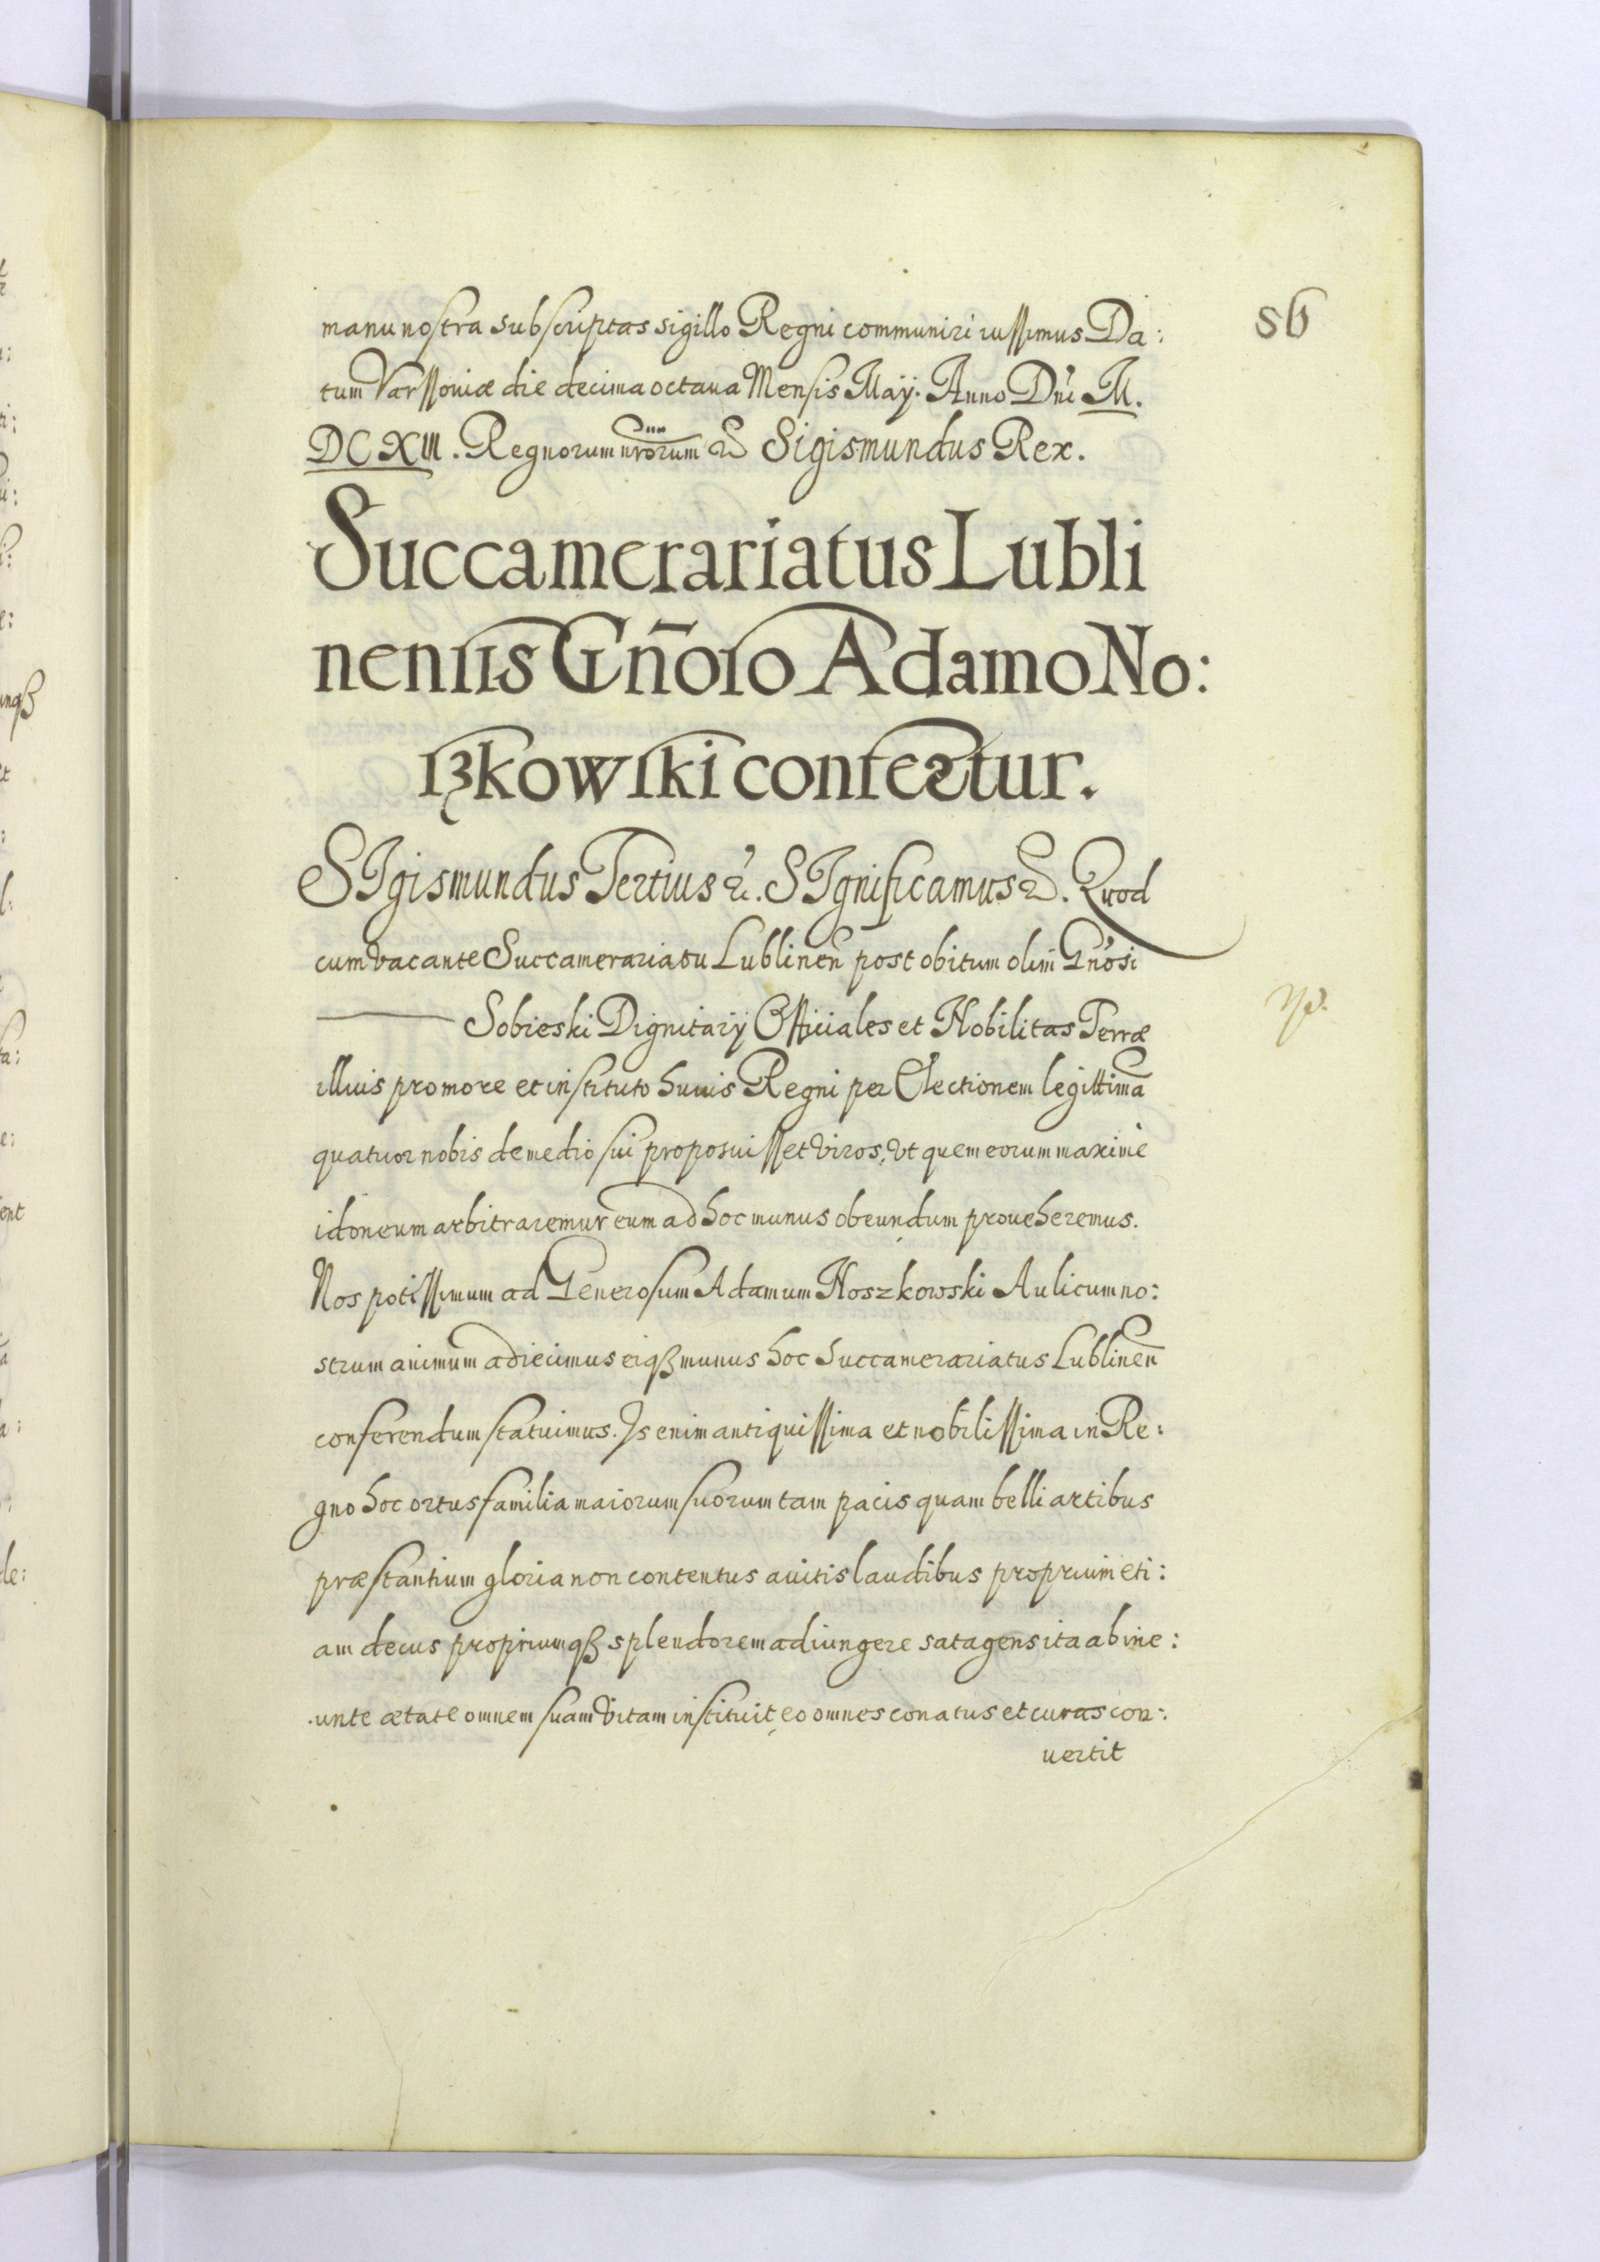 56
manu nostra subscriptas sigillo Regni communiri iussimus Da:
tum Varssoviæ die decima octava Mensis Maÿ. Anno Dni M.
DCXIII. Regnorum nrorum &c Sigismundus Rex.
Succamerariatus Lubli
nensis Gn̄oso Adamo No:
szkowski confertur.
SIgismundus Tertius &c. SIgnificamus &c. Quod
cum vacante Succamerariatu Lublinen̄ post obitum olim Gnosi
Sobieski Dignitarij Officiales et Nobilitas Terræ
illius pro more et instituto huius Regni per Electionem legittimā
quatuor nobis de medio sui proposuisset viros, vt quem eorum maxime
idoneum arbitraremur eum ad hoc munus obeundum proueheremus.
Nos potissimum ad Generosum Adamum Noszkowski Aulicum no:
strum animum adiecimus eiqß munus hoc Succamerariatus Lublinen̄
conferendum statuimus. Is enim antiquissima et nobilissima in Re:
gno hoc ortus familia maiorum suorum tam pacis quam belli artibus
præstantium gloria non contentus auitis laudibus proprium eti:
am decus propriumqß splendorem adiungere satagens ita ab ine:
unte ætate omnem suam vitam instituit, eo omnes conatus et curas con:
uertit